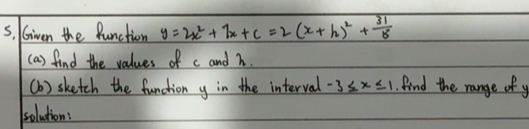 5. Given the function y = 2x² + 7x + c = 2(x + h)² + 31/8
(a) find the values of c and h.
(b) sketch the function y in the interval -3 ≤ x ≤ 1. find the range of y
solution: